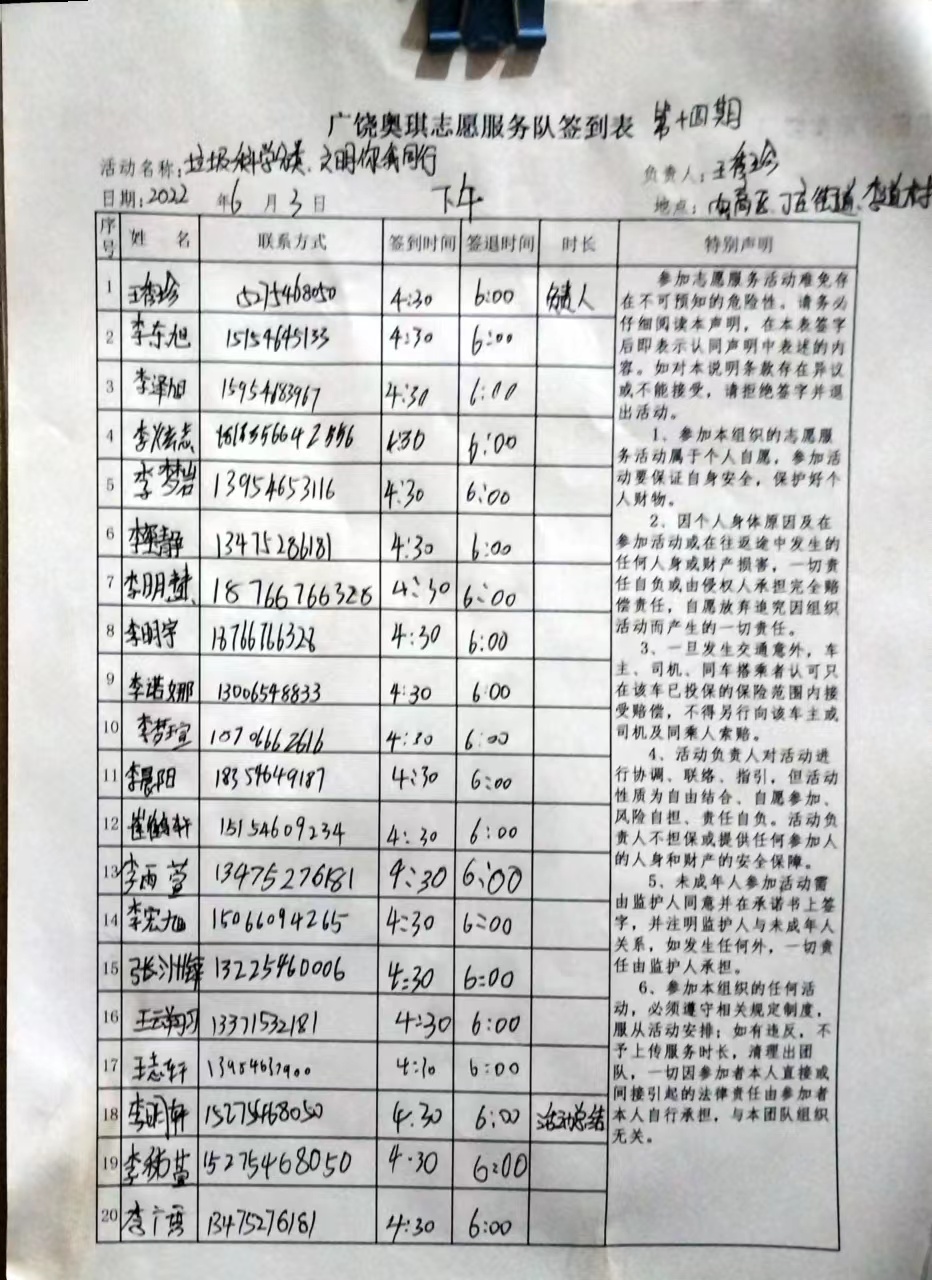 广饶奥琪志愿服务队签到表 第十四期
活动名称:垃圾科学分类、文明你我同行 负责人:王秀珍
日期:2022 年6 月 3 日 下午 地点:南商区丁庄街道、李道村
序号 姓 名 联系方式 签到时间 签退时间 时长 特别声明
1 王秀珍 15275468050 4:30 6:00 负责人
2 李东旭 15154645133 4:30 6:00
3 李泽旭 15954683967 4:30 6:00
4 4:30 6:00
5 李梦岩 13954653116 4:30 6:00
6 13475286181 4:30 6:00
7 李明慧 18766766328 4:30 6:00
8 李明宇 18766766328 4:30 6:00
9 李诺娜 13006548833 4:30 6:00
10 李梦瑄 4:30 6:00
11 李晨阳 18354649187 4:30 6:00
12 崔鹤轩 15154609234 4:30 6:00
13 李雨萱 13475276181 4:30 6:00
14 李宏旭 15066094265 4:30 6:00
15 13225460006 4:30 6:00
16 王云翔 13371532181 4:30 6:00
17 王志轩 4:30 6:00
18 李明轩 15275468050 4:30 6:00 活动总结
19 15275468050 4:30 6:00
20 13475276181 4:30 6:00
参加志愿服务活动难免存
在不可预知的危险性。请务必
仔细阅读本声明,在本表签字
后即表示认同声明中表述的内
容。如对本说明条款存在异议
或不能接受,请拒绝签字并退
出活动。
1、参加本组织的志愿服
务活动属于个人自愿,参加活
动要保证自身安全,保护好个
人财物。
2、因个人身体原因及在
参加活动或在往返途中发生的
任何人身或财产损害,一切责
任自负或由侵权人承担完全赔
偿责任,自愿放弃追究因组织
活动而产生的一切责任。
3、一旦发生交通意外,车
主、司机、同车搭乘者认可只
在该车已投保的保险范围内接
受赔偿,不得另行向该车主或
司机及同乘人索赔。
4、活动负责人对活动进
行协调、联络、指引,但活动
性质为自由结合、自愿参加、
风险自担、责任自负。活动负
责人不担保或提供任何参加人
的人身和财产的安全保障。
5、未成年人参加活动需
由监护人同意并在承诺书上签
字,并注明监护人与未成年人
关系,如发生任何外,一切责
任由监护人承担。
6、参加本组织的任何活
动,必须遵守相关规定制度,
服从活动安排;如有违反,不
予上传服务时长,清理出团
队,一切因参加者本人直接或
间接引起的法律责任由参加者
本人自行承担,与本团队组织
无关。